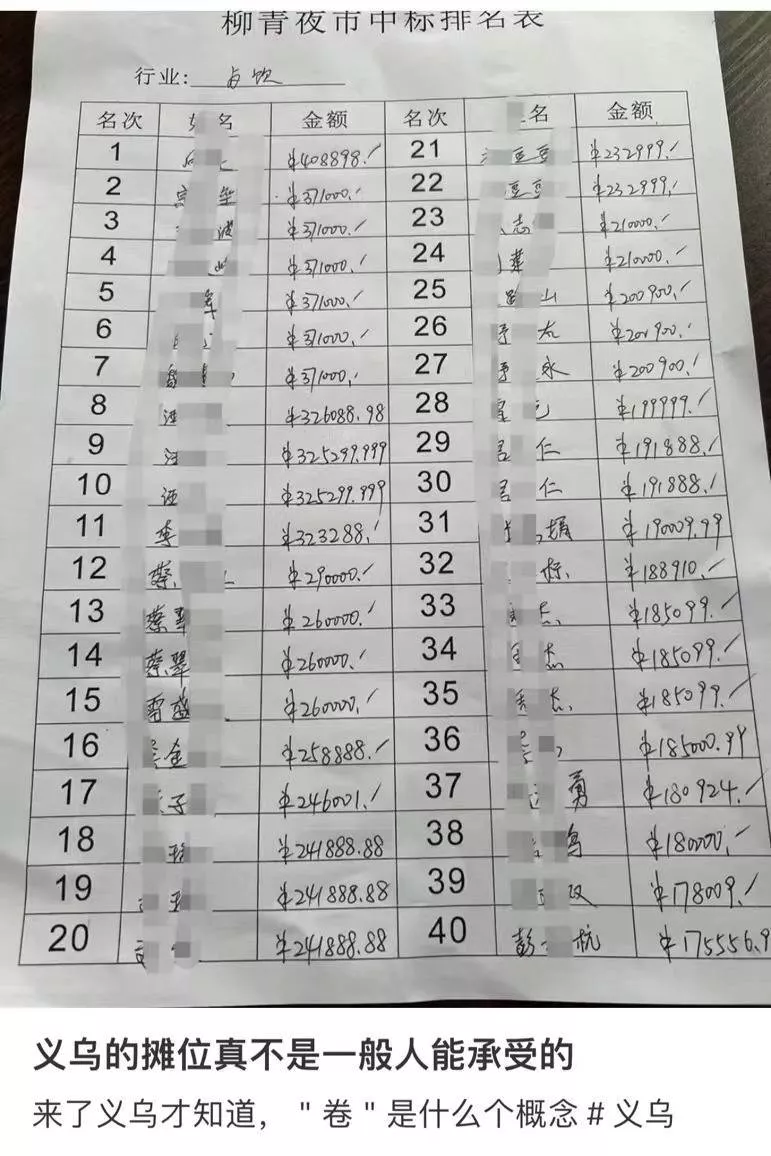 柳青夜市中标排名表
行业:
名次 名 金额 名次 名 金额
1 ¥408898./ 21 豆豆 ¥232999./
2 ¥371000./ 22 豆豆 ¥232999./
3 波 ¥371000./ 23 志 ¥210000./
4 ¥371000./ 24 ¥210000./
5 ¥371000./ 25 山 ¥200900./
6 ¥371000./ 26 太 ¥200900./
7 ¥371000./ 27 永 ¥200900./
8 ¥326088.98 28 ¥199999./
9 ¥325299.999 29 仁 ¥191888./
10 ¥325299.999 30 仁 ¥191888./
11 李 ¥323288./ 31 娟 ¥190009.99
12 蔡 ¥290000./ 32 标 ¥188910./
13 蔡翠 ¥260000./ 33 杰 ¥185099./
14 蔡翠 ¥260000./ 34 杰 ¥185099./
15 雷益 ¥260000./ 35 杰 ¥185099./
16 金 ¥258888./ 36 ¥185000.99
17 子 ¥246001./ 37 勇 ¥180924./
18 ¥241888.88 38 ¥180000./
19 ¥241888.88 39 双 ¥178009./
20 ¥241888.88 40 彭 杭 ¥175556.9
义乌的摊位真不是一般人能承受的
来了义乌才知道，"卷"是什么个概念#义乌